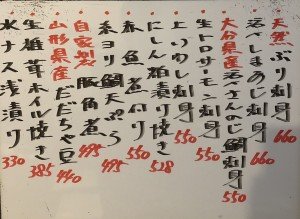 天然ぶり刺身 660
活〆しまあじ刺身 660
大分県産活きのじ鯛刺身 550
生トロサーモン刺身 550
上いわし刺身 550
にしん柚漬け焼き 528
赤魚煮付け 550
糸ヨリ鯛天ぷら 495
自家製豚角煮 495
山形県産だだちゃ豆 440
生椎茸ホイル焼き 385
水ナス浅漬り 330